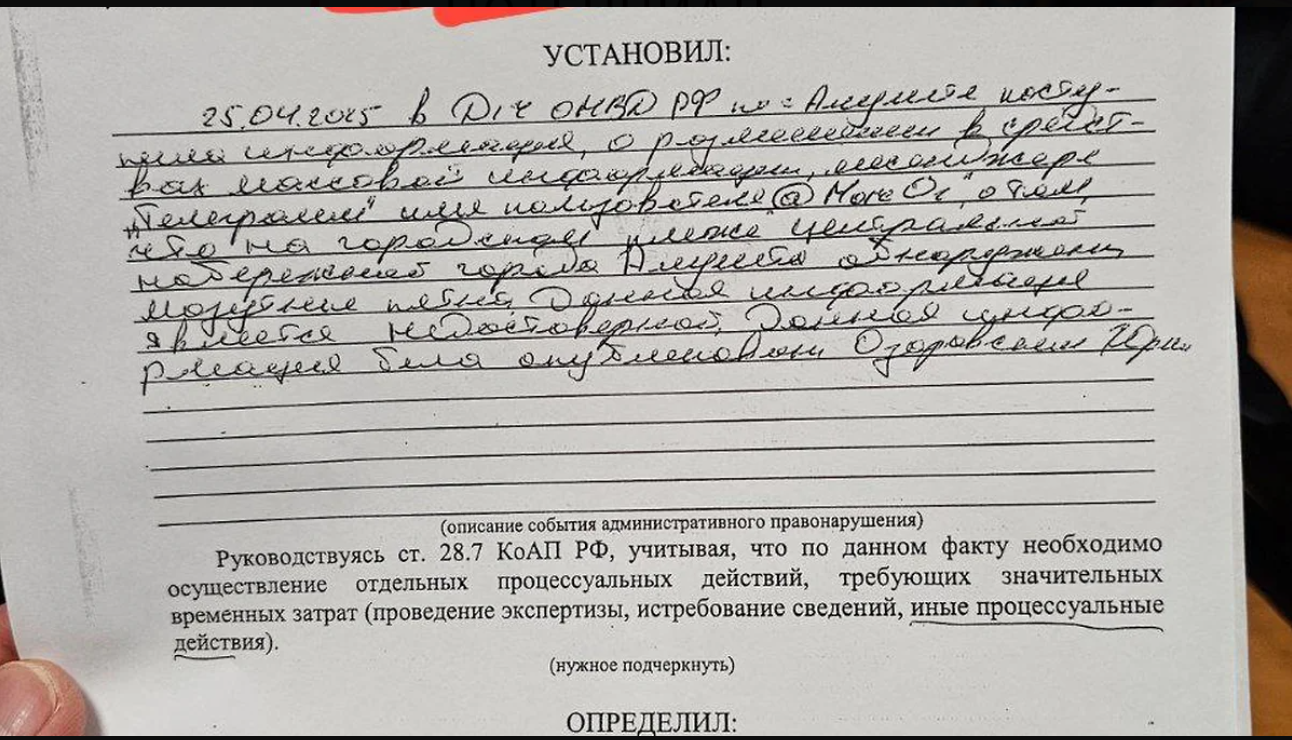 УСТАНОВИЛ:
25.04.2025 в Д/Ч ОМВД РФ по г. Алуште посту-
пила информация, о размещении в средст-
вах массовой информации, мессенджере
„Телеграмм" имя пользователя @More Or", о том,
что на городском пляже центральной
набережной города Алушта обнаружены
мазутные пятна. Данная информация
является недостоверной. Данная инфо-
рмация была опубликована Юри
(описание события административного правонарушения)
Руководствуясь ст. 28.7 КоАП РФ, учитывая, что по данном факту необходимо
осуществление отдельных процессуальных действий, требующих значительных
временных затрат (проведение экспертизы, истребование сведений, иные процессуальные
действия).
(нужное подчеркнуть)
ОПРЕДЕЛИЛ: